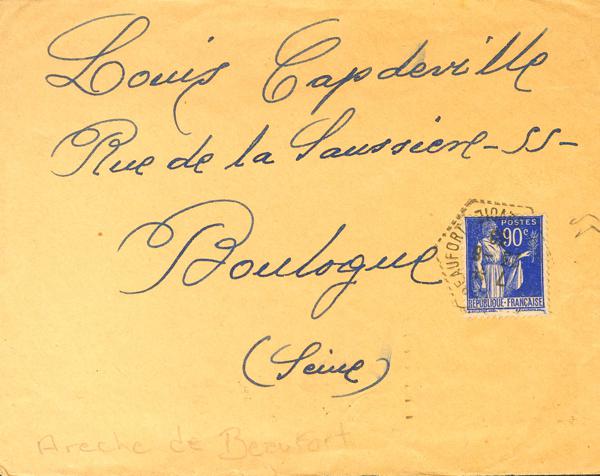 Louis Capdeville
Rue de la Saussière - 55 -
Boulogne
(Seine)
POSTES
90c
REPUBLIQUE-FRANÇAISE
EAUFORT
Areche de Beaufort